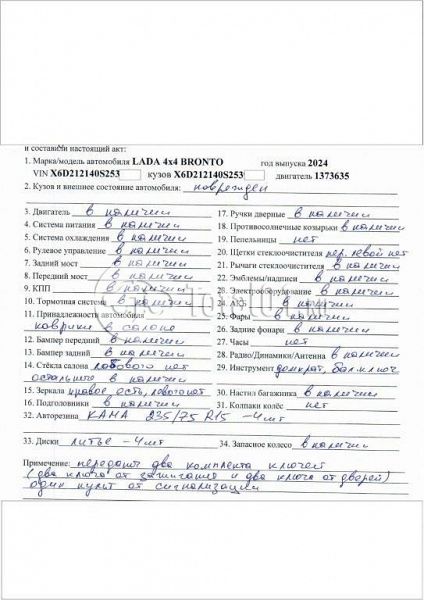 и составели настоящий акт:
1. Марка/модель автомобиля LADA 4x4 BRONTO год выпуска 2024
VIN X6D212140S253 кузов X6D212140S253 двигатель 1373635
2. Кузов и внешнее состояние автомобиля: поврежден
3. Двигатель в наличии
4. Система питания в наличии
5. Система охлаждения в наличии
6. Рулевое управление в наличии
7. Задний мост в наличии
8. Передний мост в наличии
9. КПП в наличии
10. Тормозная система в наличии
11. Принадлежности автомобиля
коврики в салоне
12. Бампер передний в наличии
13. Бампер задний в наличии
14. Стёкла салона лобового нет
остальные в наличии
15. Зеркала правое есть, левого нет
16. Подголовники в наличии
17. Ручки дверные в наличии
18. Противосолнечные козырьки в наличии
19. Пепельницы нет
20. Щетки стеклоочистителя пер. левой нет
21. Рычаги стеклоочистителя в наличии
22. Эмблемы/надписи в наличии
23. Электрооборудование в наличии
24. АКБ в наличии
25. Фары в наличии
26. Задние фонари в наличии
27. Часы нет
28. Радио/Динамики/Антенна в наличии
29. Инструмент домкрат, бал. ключ
30. Настил багажника в наличии
31. Колпаки колёс нет
32. Авторезина КАМА 235/75 R15 -4шт
33. Диски литье -4шт 34. Запасное колесо в наличии
Примечание: передают два комплекта ключей
(два ключа от зажигания и два ключа от дверей)
один пульт от сигнализации